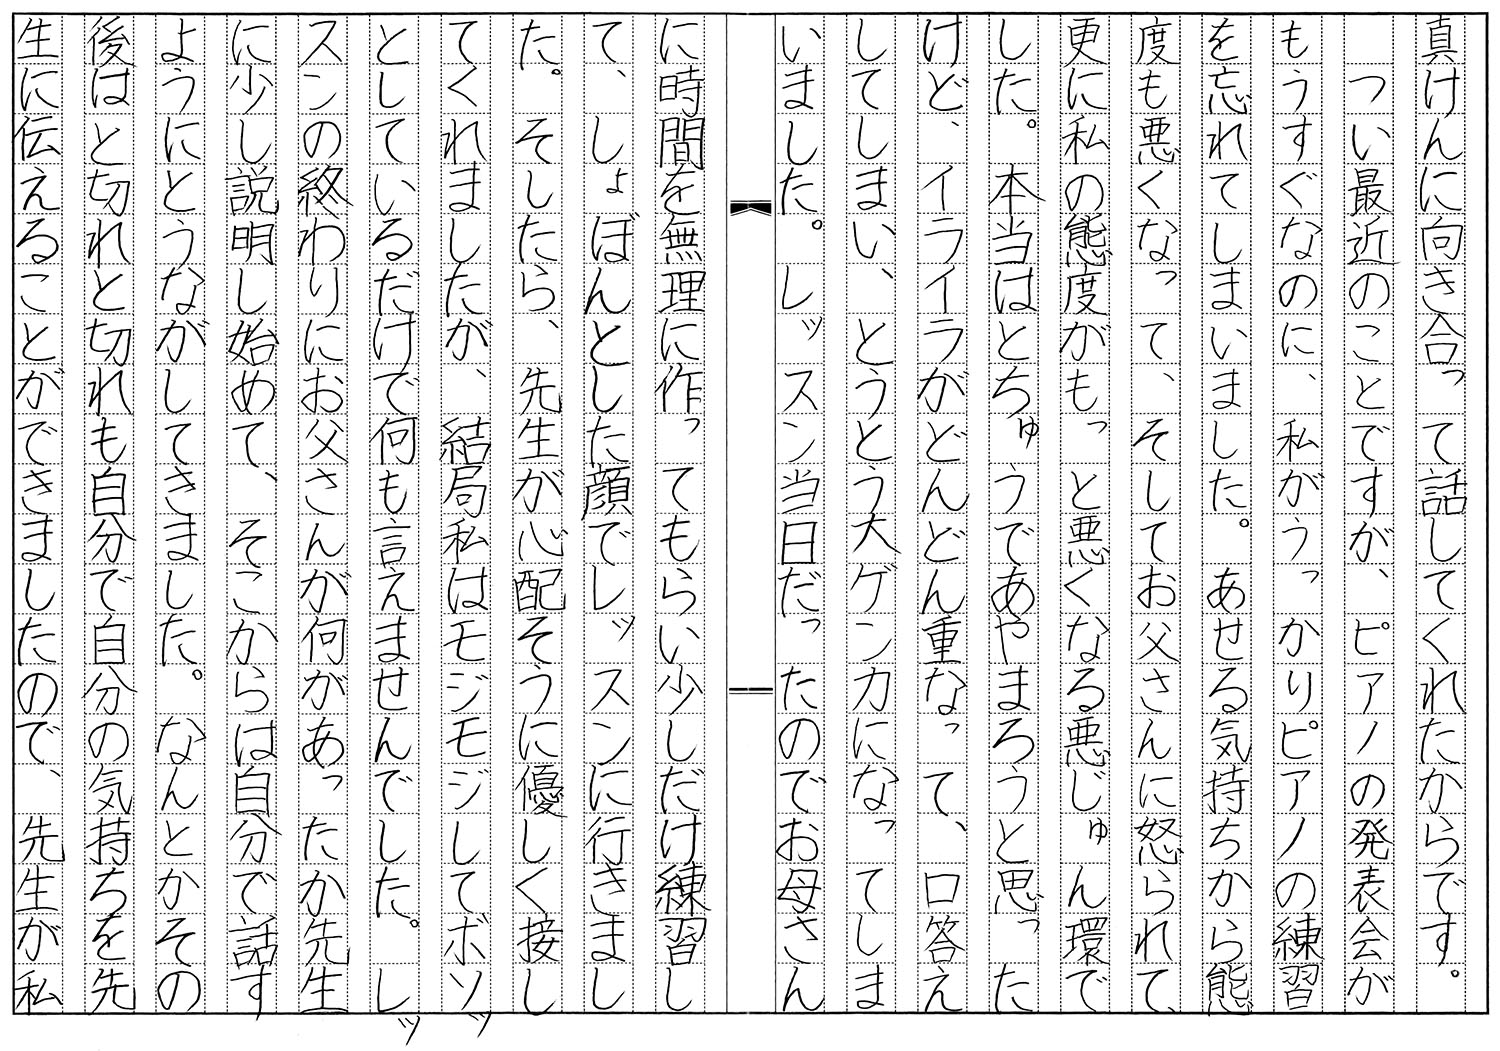 真けんに向き合って話してくれたからです。
つい最近のことですが、ピアノの発表会が
もうすぐなのに、私がうっかりピアノの練習
を忘れてしまいました。あせる気持ちから態
度も悪くなって、そしてお父さんに怒られて、
更に私の態度がもっと悪くなる悪じゅん環で
した。本当はとちゅうであやまろうと思った
けど、イライラがどんどん重なって、口答え
してしまい、とうとう大ゲンカになってしま
いました。レッスン当日だったのでお母さん
に時間を無理に作ってもらい少しだけ練習し
て、しょぼんとした顔でレッスンに行きまし
た。そしたら、先生が心配そうに優しく接し
てくれましたが、結局私はモジモジしてボソッ
としているだけで何も言えませんでした。レッ
スンの終わりにお父さんが何があったか先生
に少し説明し始めて、そこからは自分で話す
ようにとうながしてきました。なんとかその
後はと切れと切れも自分で自分の気持ちを先
生に伝えることができましたので、先生が私